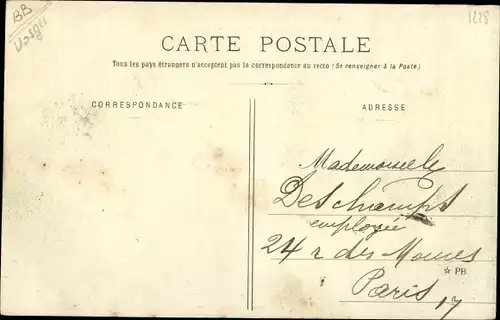 BB
Vosges
1228
CARTE POSTALE
Tous les pays étrangers n'acceptent pas la correspondance au recto (Se renseigner à la Poste)
CORRESPONDANCE
ADRESSE
Mademoiselle
Deschamps
employée
24 r des Moines
☆ PB
Paris 17